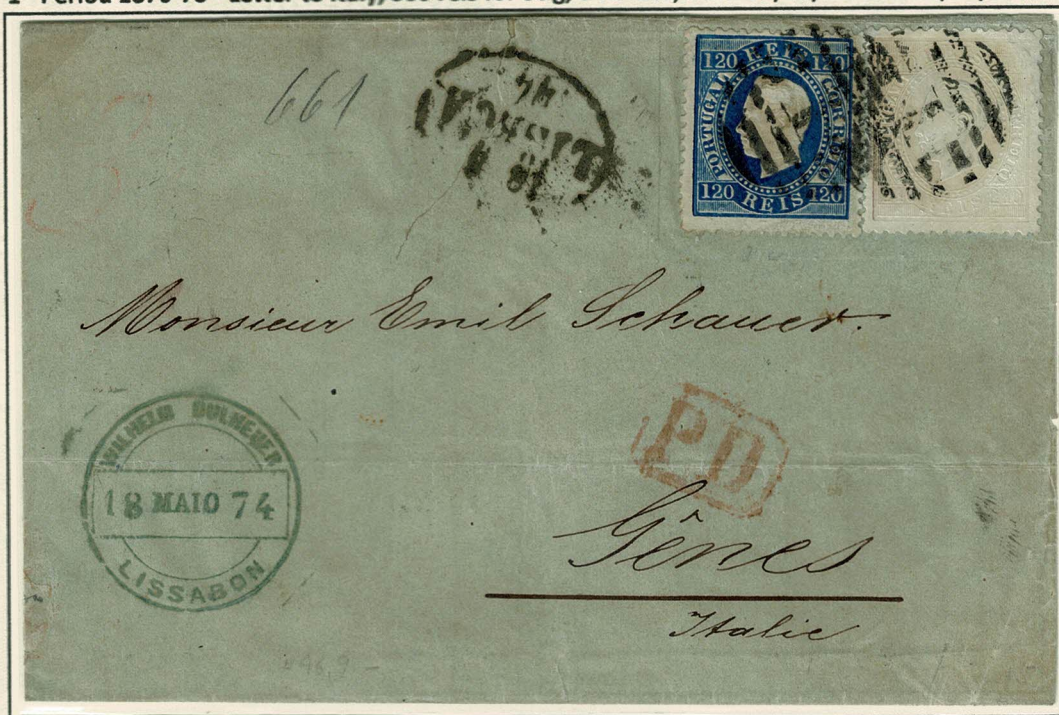 661
LISBOA
18
74
120 REIS 120
PORTUGAL
CORREIO
120 REIS 120
Monsieur Emil Schauer.
WILHELM
18 MAIO 74
LISSABON
P.D.
Gênes
Italie